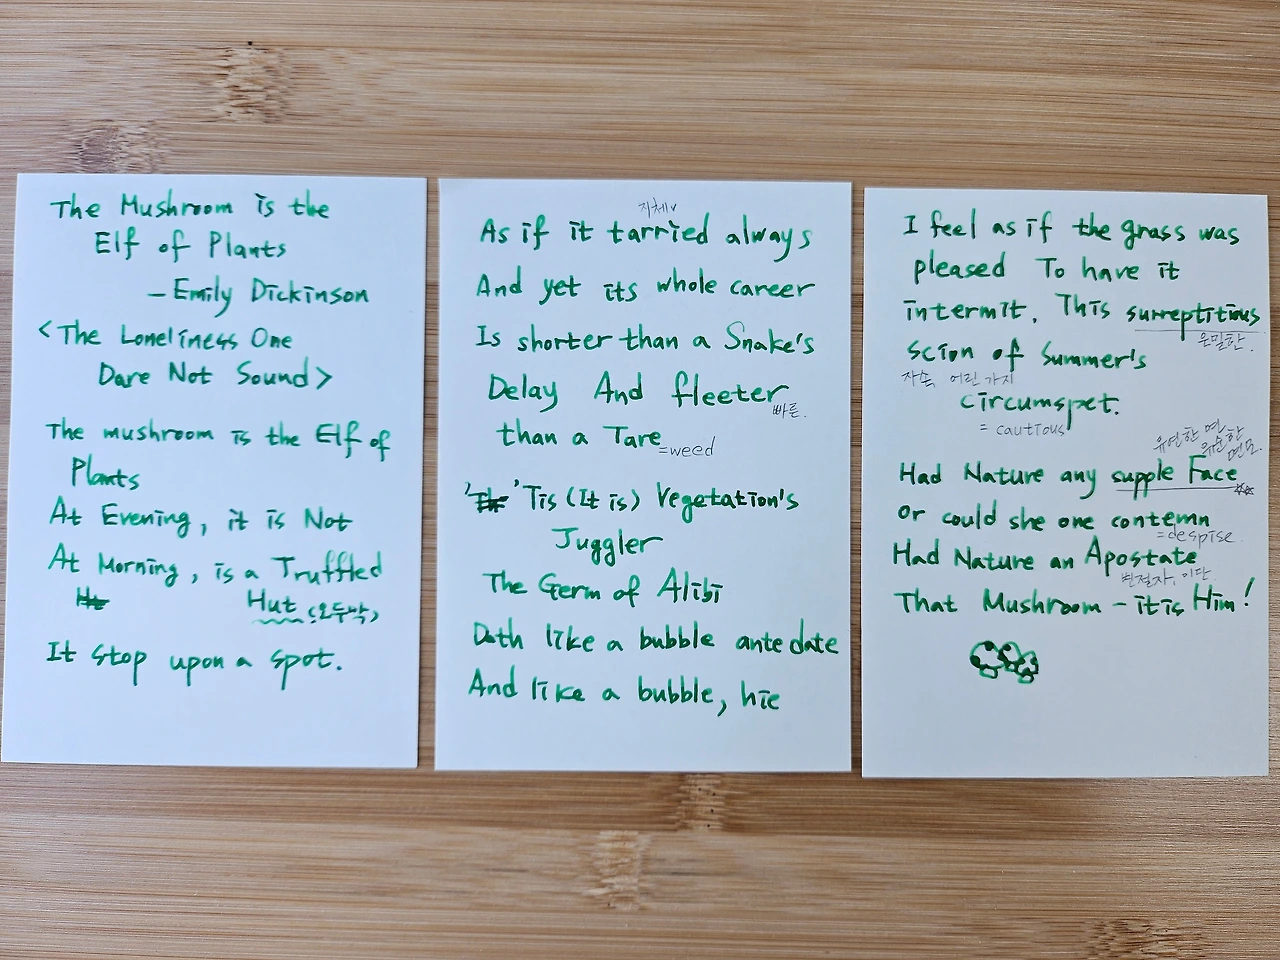 The Mushroom is the
Elf of Plants
- Emily Dickinson
<The Loneliness One
Dare Not Sound>
The mushroom is the Elf of
Plants
At Evening, it is Not
At Morning, is a Truffled
Hut (오두막)
It stop upon a spot.
지체
As if it tarried always
And yet its whole career
Is shorter than a Snake's
Delay And fleeter
빠른.
than a Tare =weed
'Tis (It is) Vegetation's
Juggler
The Germ of Alibi
Doth like a bubble antedate
And like a bubble, hie
I feel as if the grass was
pleased To have it
intermit. This surreptitious
은밀한.
scion of Summer's
자손, 어린 가지
circumspet.
= cautious
유연한 면
유순한
면모.
Had Nature any supple Face
or could she one contemn
=despise.
Had Nature an Apostate
변절자, 이단
That Mushroom - it is Him!